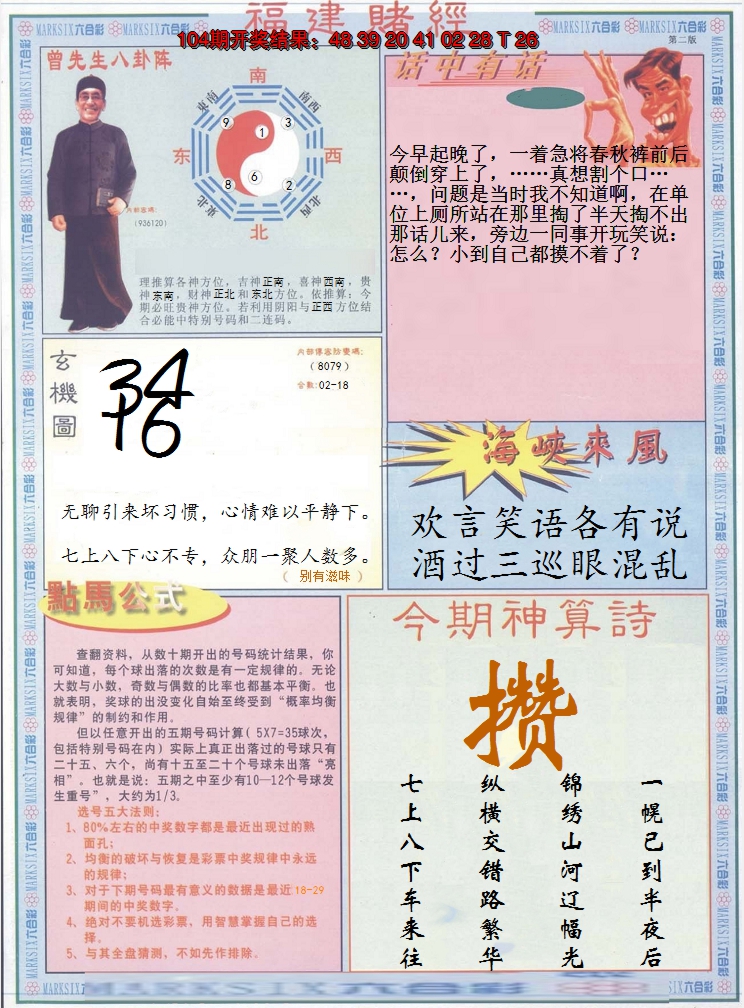 福建賭經
104期开奖结果：48 39 20 41 02 28 T 26
MARKSIX六合彩
第二版
曾先生八卦阵
南
東南
南西
9
1
3
东
西
8
6
2
東北
北西
北
内部密碼：
(936120)
理推算各神方位，吉神正南，喜神西南，贵
神东南，财神正北和东北方位。依推算：今
期必旺贵神方位。若利用阴阳与正西方位结
合必能中特别号码和二连码。
话中有话
今早起晚了，一着急将春秋裤前后
颠倒穿上了，……真想割个口…
…，问题是当时我不知道啊，在单
位上厕所站在那里掏了半天掏不出
那话儿来，旁边一同事开玩笑说：
怎么？小到自己都摸不着了？
玄機圖
34
16
内部傳密防變碼：
(8079)
合數：02-18
无聊引来坏习惯，心情难以平静下。
七上八下心不专，众朋一聚人数多。
（ 别有滋味 ）
海峽來風
欢言笑语各有说
酒过三巡眼混乱
點馬公式
查翻资料，从数十期开出的号码统计结果，你
可知道，每个球出落的次数是有一定规律的。无论
大数与小数，奇数与偶数的比率也都基本平衡。也
就表明，奖球的出没变化自始至终受到“概率均衡
规律”的制约和作用。
但以任意开出的五期号码计算（5X7=35球次，
包括特别号码在内）实际上真正出落过的号球只有
二十五、六个，尚有十五至二十个号球未出落“亮
相”。也就是说：五期之中至少有10—12个号球发
生重号”，大约为1/3。
选号五大法则：
1、80%左右的中奖数字都是最近出现过的熟
面孔；
2、均衡的破坏与恢复是彩票中奖规律中永远
的规律；
3、对于下期号码最有意义的数据是最近18-29
期间的中奖数字。
4、绝对不要机选彩票，用智慧掌握自己的选
择。
5、与其全盘猜测，不如先作排除。
今期神算詩
攒
一幌已到半夜后
锦绣山河辽幅光
纵横交错路繁华
七上八下车来往